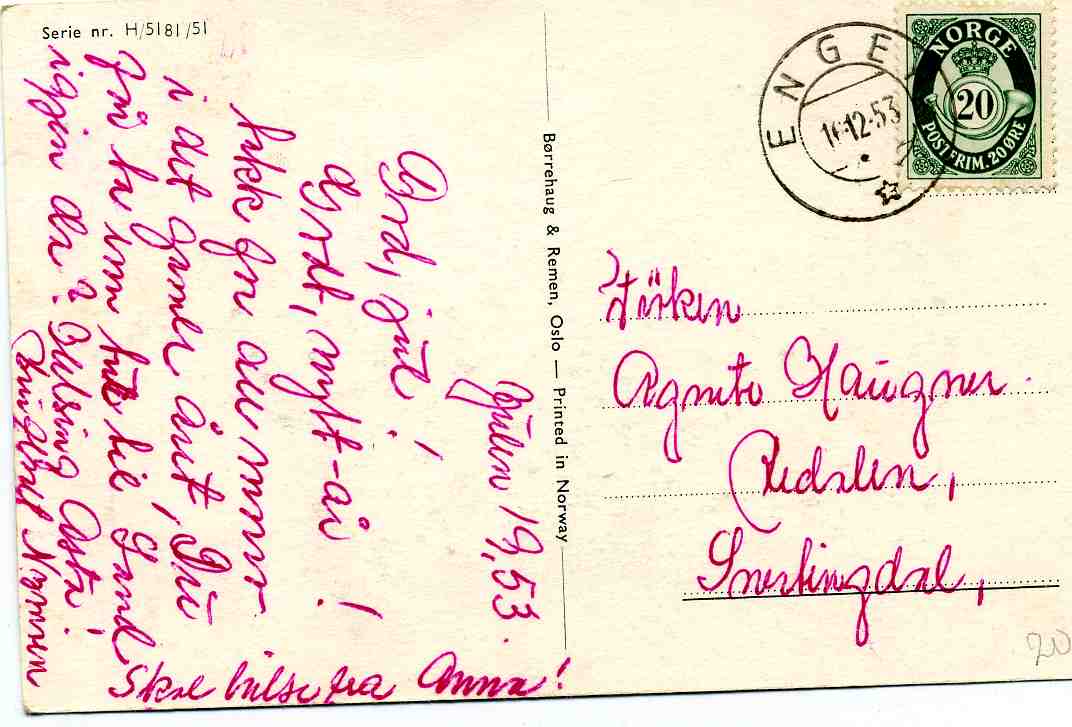 Serie nr. H/5181/51
Julen 19,53.
God, jul!
Godt, nytt-år!
takk for all mmor
i det gamle året, Du
får ta en til Gand
igjen da? Helsing Asta!
Skal hilse fra Anna!
Børrehaug & Remen, Oslo — Printed in Norway
ENGE
16.12.53
NORGE
20
POSTFRIM. 20 ØRE
Frøken
Agnete Haugner.
Redalen,
Snertingdal,
20